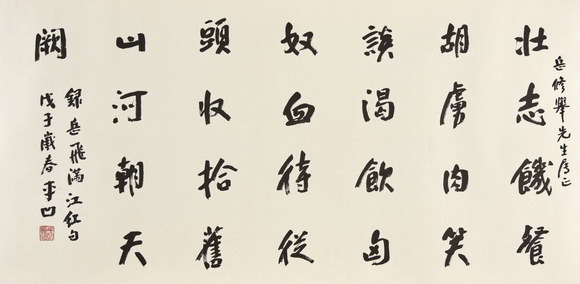 岳修舉先生属正
壮志饑餐
胡虜肉笑
談渴飲匈
奴血待從
頭收拾舊
山河朝天
闕
錄岳飛滿江紅句
戊子歲春平凹